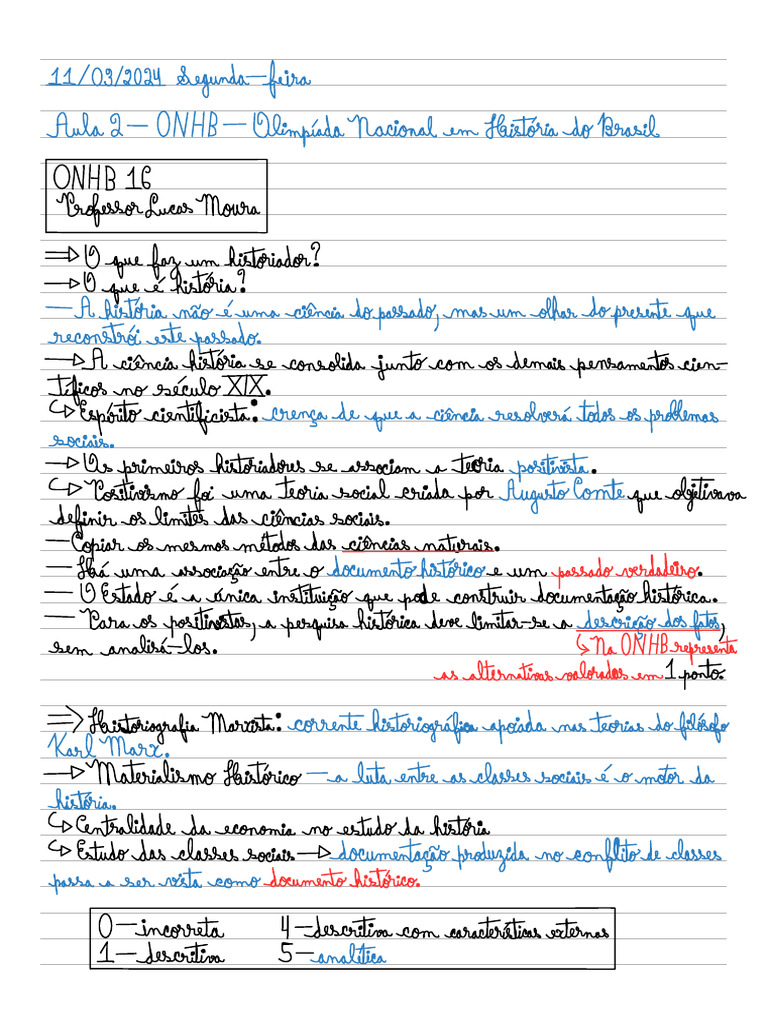 11/03/2024 Segunda-feira
Aula 2 — ONHB — Olimpíada Nacional em História do Brasil
ONHB 16
Professor Lucas Moura
⇒ O que faz um historiador?
→ O que é história?
— A história não é uma ciência do passado, mas um olhar do presente que
reconstrói este passado.
→ A ciência história se consolida junto com os demais pensamentos cien-
tíficos no século XIX.
↳ Espírito cientificista: crença de que a ciência resolverá todos os problemas
sociais.
→ Os primeiros historiadores se associam a teoria positivista.
↳ Positivismo foi uma teoria social criada por Augusto Comte que objetivava
definir os limites das ciências sociais.
— Copiar os mesmos métodos das ciências naturais.
— Há uma associação entre o documento histórico e um passado verdadeiro.
— O Estado é a única instituição que pode construir documentação histórica.
— Para os positivistas, a pesquisa histórica deve limitar-se a descrição dos fatos,
sem analisá-los. ↳ Na ONHB representa
as alternativas valoradas em 1 ponto.
⇒ Historiografia Marxista: corrente historiográfica apoiada nas teorias do filósofo
Karl Marx.
→ Materialismo Histórico — a luta entre as classes sociais é o motor da
história.
↳ Centralidade da economia no estudo da história
↳ Estudo das classes sociais → documentação produzida no conflito de classes
passa a ser vista como documento histórico.
0 — incorreta 4 — descritiva com características externas
1 — descritiva 5 — analítica